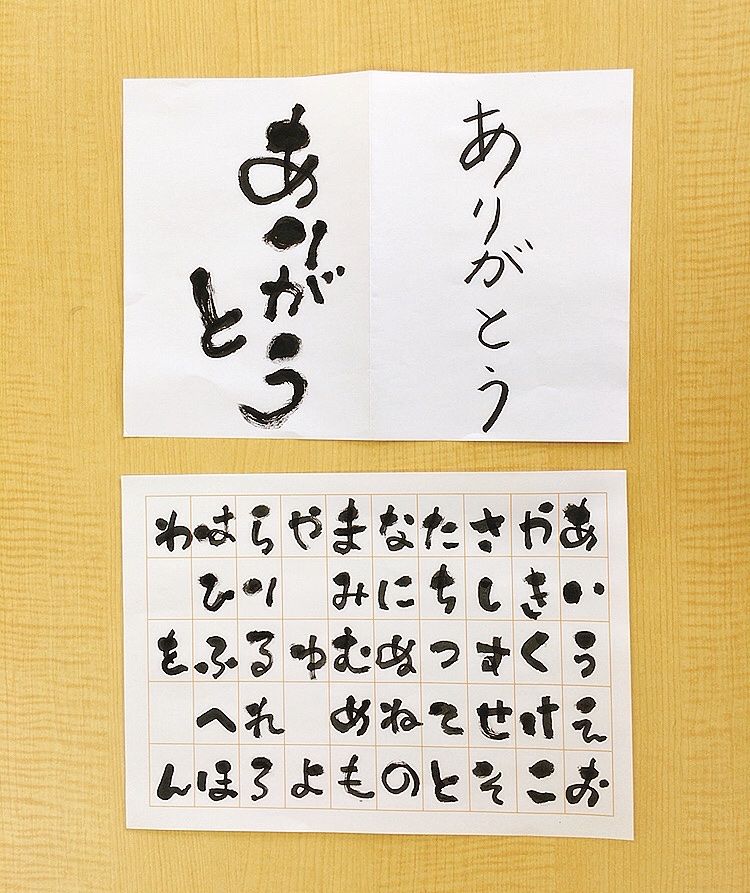 ありがとう
ありがとう
あいうえお
かきくけこ
さしすせそ
たちつてと
なにぬねの
まみむめも
やゆよ
らりるれろ
はひふへほ
わをん